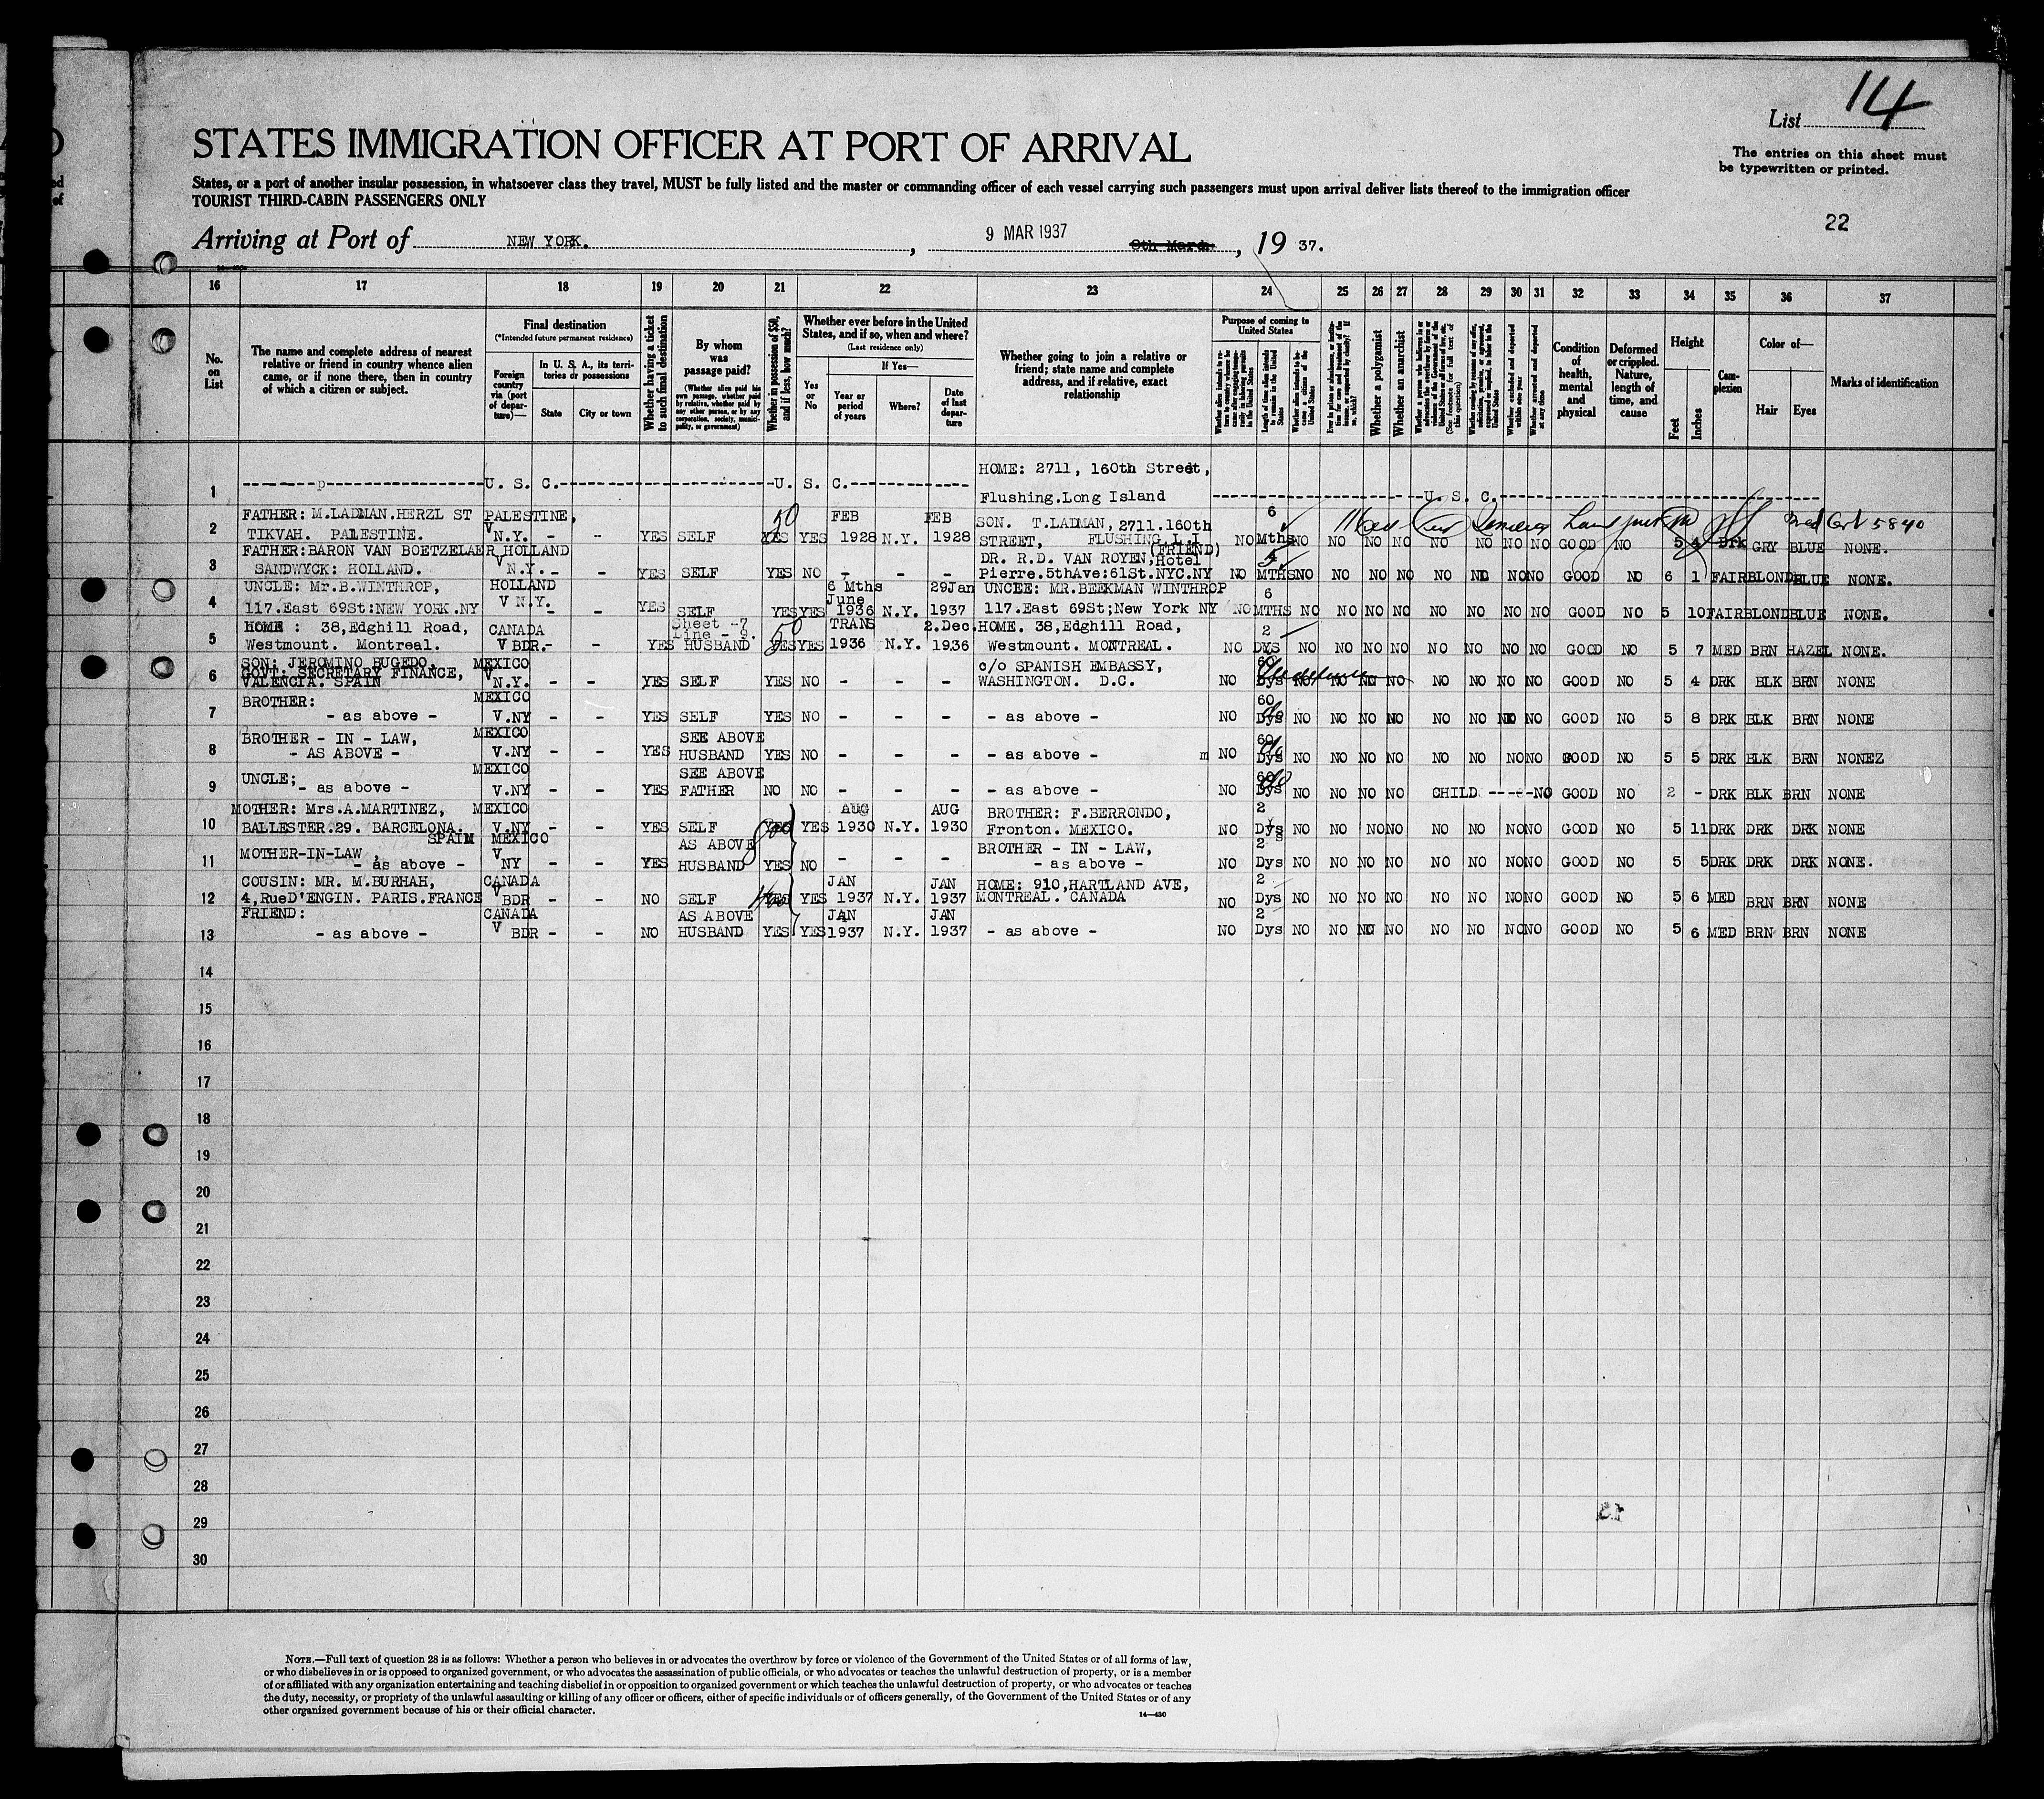 List 14
STATES IMMIGRATION OFFICER AT PORT OF ARRIVAL
The entries on this sheet must
be typewritten or printed.
States, or a port of another insular possession, in whatsoever class they travel, MUST be fully listed and the master or commanding officer of each vessel carrying such passengers must upon arrival deliver lists thereof to the immigration officer
TOURIST THIRD-CABIN PASSENGERS ONLY
22
Arriving at Port of NEW YORK. , 9 MAR 1937 8th March , 19 37.
16 17 18 19 20 21 22 23 24 25 26 27 28 29 30 31 32 33 34 35 36 37
No. on List
The name and complete address of nearest relative or friend in country whence alien came, or if none there, then in country of which a citizen or subject.
Final destination
(*Intended future permanent residence)
Foreign country via (port of departure)—
In U. S. A., its territories or possessions
State
City or town
Whether having a ticket to such final destination
By whom was passage paid?
(Whether alien paid his own passage, whether paid by relative, whether paid by any other person, or by any corporation, society, municipality, or government)
Whether in possession of $50, and if less, how much?
Whether ever before in the United States, and if so, when and where?
(Last residence only)
Yes or No
If Yes—
Year or period of years
Where?
Date of last departure
Whether going to join a relative or friend; state name and complete address, and if relative, exact relationship
Purpose of coming to United States
Length of time alien intends to remain in the United States
Whether alien intends to become a citizen of the United States
Whether a polygamist
Whether an anarchist
(See footnote for full text of this question)
Whether excluded and deported within one year
Whether arrested and deported at any time
Condition of health, mental and physical
Deformed or crippled. Nature, length of time, and cause
Height
Feet
Inches
Complexion
Color of—
Hair
Eyes
Marks of identification
1 ---p--- U. S. C. --- U. S. C. --- HOME: 2711, 160th Street, Flushing.Long Island --- U. S. C. ---
2 FATHER: M.LADMAN.HERZL ST TIKVAH. PALESTINE. PALESTINE, V N.Y. - - YES SELF YES 50 YES FEB 1928 N.Y. FEB 1928 SON. T.LADMAN, 2711.160th STREET, FLUSHING.L.I NO 6 Mths NO NO NO NO NO NO NO NO GOOD NO 5 4 DRK GRY BLUE NONE. Med Cert 5840
3 FATHER:BARON VAN BOETZELAER SANDWYCK: HOLLAND. HOLLAND V N.Y. - - YES SELF YES NO - - - DR. R.D. VAN ROYEN, (FRIEND) Hotel Pierre.5thAve:61St.NYC.NY NO MTHS NO NO NO NO NO NO NO NO GOOD NO 6 1 FAIR BLOND BLUE NONE.
4 UNCLE: Mr.B.WINTHROP, 117.East 69St:NEW YORK.NY HOLLAND V N.Y. - - YES SELF YES YES 6 Mths June 1936 N.Y. 29Jan 1937 UNCLE: MR.BEEKMAN WINTHROP 117.East 69St;New York NY NO 6 MTHS NO NO NO NO NO NO NO NO GOOD NO 5 10 FAIR BLOND BLUE NONE.
5 HOME : 38,Edghill Road, Westmount. Montreal. CANADA V BDR.- - YES Sheet -7 Line - 8. HUSBAND YES 50 YES TRANS 1936 N.Y. 2.Dec. 1936 HOME. 38,Edghill Road, Westmount. MONTREAL. NO 2 DYS NO NO NO NO NO NO NO NO GOOD NO 5 7 MED BRN HAZEL NONE.
6 SON: JEROMINO BUGEDO. GOVT: SECRETARY FINANCE, VALENCIA. SPAIN MEXICO V N.Y. - - YES SELF YES NO - - - c/o SPANISH EMBASSY, WASHINGTON. D.C. NO 60 Dys NO NO NO NO NO NO NO NO GOOD NO 5 4 DRK BLK BRN NONE
7 BROTHER: - as above - MEXICO V.NY - - YES SELF YES NO - - - - as above - NO 60 Dys NO NO NO NO NO NO NO NO GOOD NO 5 8 DRK BLK BRN NONE
8 BROTHER - IN - LAW, - AS ABOVE - MEXICO V.NY - - YES SEE ABOVE HUSBAND YES NO - - - - as above - m NO 60 Dys NO NO NO NO NO NO NO NO GOOD NO 5 5 DRK BLK BRN NONEZ
9 UNCLE; - as above - MEXICO V.NY - - YES SEE ABOVE FATHER NO NO - - - - as above - NO 60 Dys NO NO NO NO CHILD ----NO GOOD NO 2 - DRK BLK BRN NONE
10 MOTHER: Mrs.A.MARTINEZ, BALLESTER.29. BARCELONA. SPAIN MEXICO V.NY - - YES SELF YES YES AUG 1930 N.Y. AUG 1930 BROTHER: F.BERRONDO, Fronton. MEXICO. NO 2 Dys NO NO NO NO NO NO NO NO GOOD NO 5 11 DRK DRK DRK NONE
11 MOTHER-IN-LAW , - as above - MEXICO V NY - - YES AS ABOVE HUSBAND YES NO - - - BROTHER - IN - LAW, - as above - NO 2 Dys NO NO NO NO NO NO NO NO GOOD NO 5 5 DRK DRK DRK NONE.
12 COUSIN: MR. M.BURHAH, 4,RueD'ENGIN. PARIS.FRANCE CANADA V BDR - - NO SELF YES YES JAN 1937 N.Y. JAN 1937 HOME: 910,HARTLAND AVE, MONTREAL. CANADA NO 2 Dys NO NO NO NO NO NO NO NO GOOD NO 5 6 MED BRN BRN NONE
13 FRIEND: - as above - CANADA V BDR - - NO AS ABOVE HUSBAND YES YES JAN 1937 N.Y. JAN 1937 - as above - NO 2 Dys NO NO NO NO NO NO NO NO GOOD NO 5 6 MED BRN BRN NONE
14
15
16
17
18
19
20
21
22
23
24
25
26
27
28
29
30
NOTE.—Full text of question 28 is as follows: Whether a person who believes in or advocates the overthrow by force or violence of the Government of the United States or of all forms of law,
or who disbelieves in or is opposed to organized government, or who advocates the assassination of public officials, or who advocates or teaches the unlawful destruction of property, or is a member
of or affiliated with any organization entertaining and teaching disbelief in or opposition to organized government or which teaches the unlawful destruction of property, or who advocates or teaches
the duty, necessity, or propriety of the unlawful assaulting or killing of any officer or officers, either of specific individuals or of officers generally, of the Government of the United States or of any
other organized government because of his or their official character.
14—430